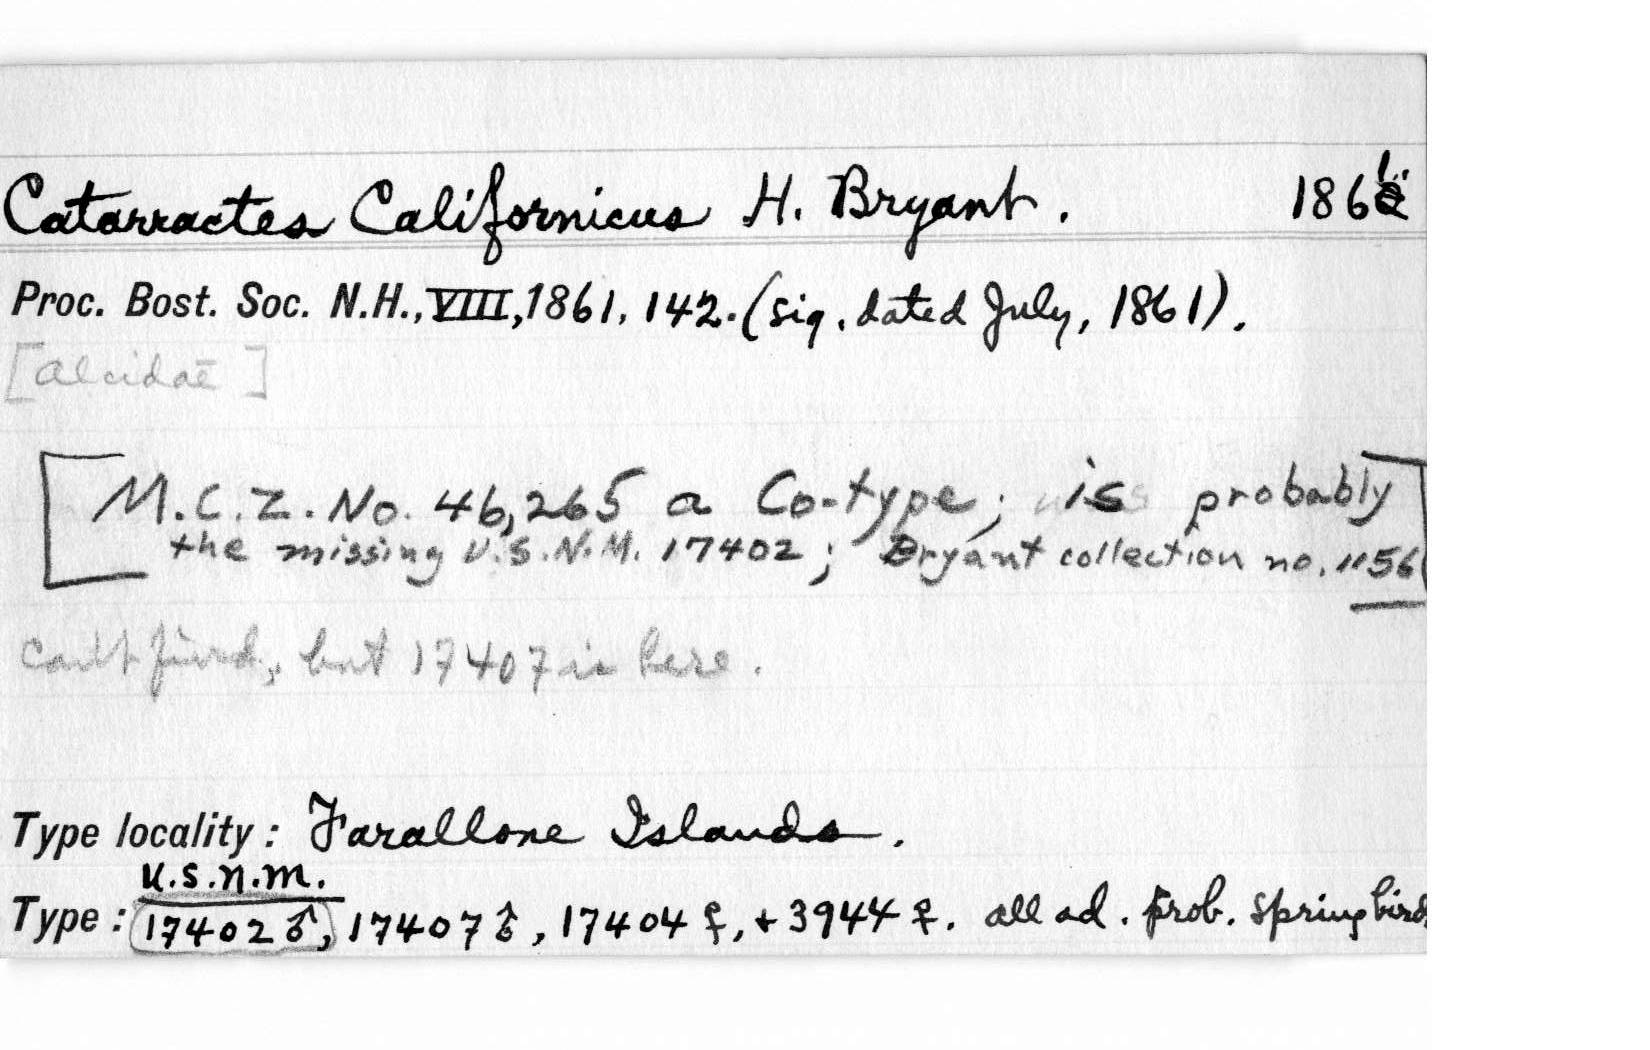 Catarractes Californicus H. Bryant. 1861
Proc. Bost. Soc. N.H., VIII, 1861, 142. (sig. dated July, 1861).
[Alcidae]
M.C.Z. No. 46,265 a Co-type; is probably
the missing U.S.N.M. 17402; Bryant collection no. 1156
can't find, but 17407 is here.
Type locality: Farallone Islands.
U.S.N.M.
Type: 17402 ♂, 17407 ♂, 17404 ♀, + 3944 ♀. all ad. prob. Spring birds